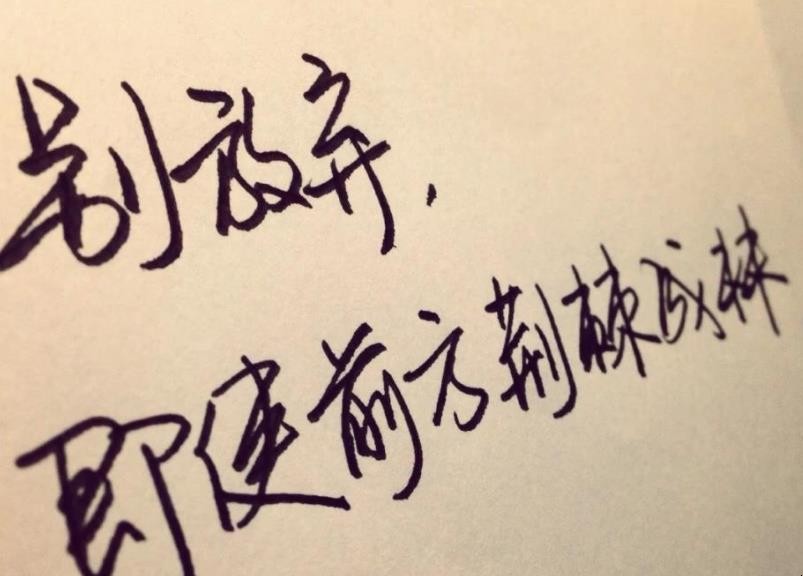 别放弃,
即使前方荆棘成林